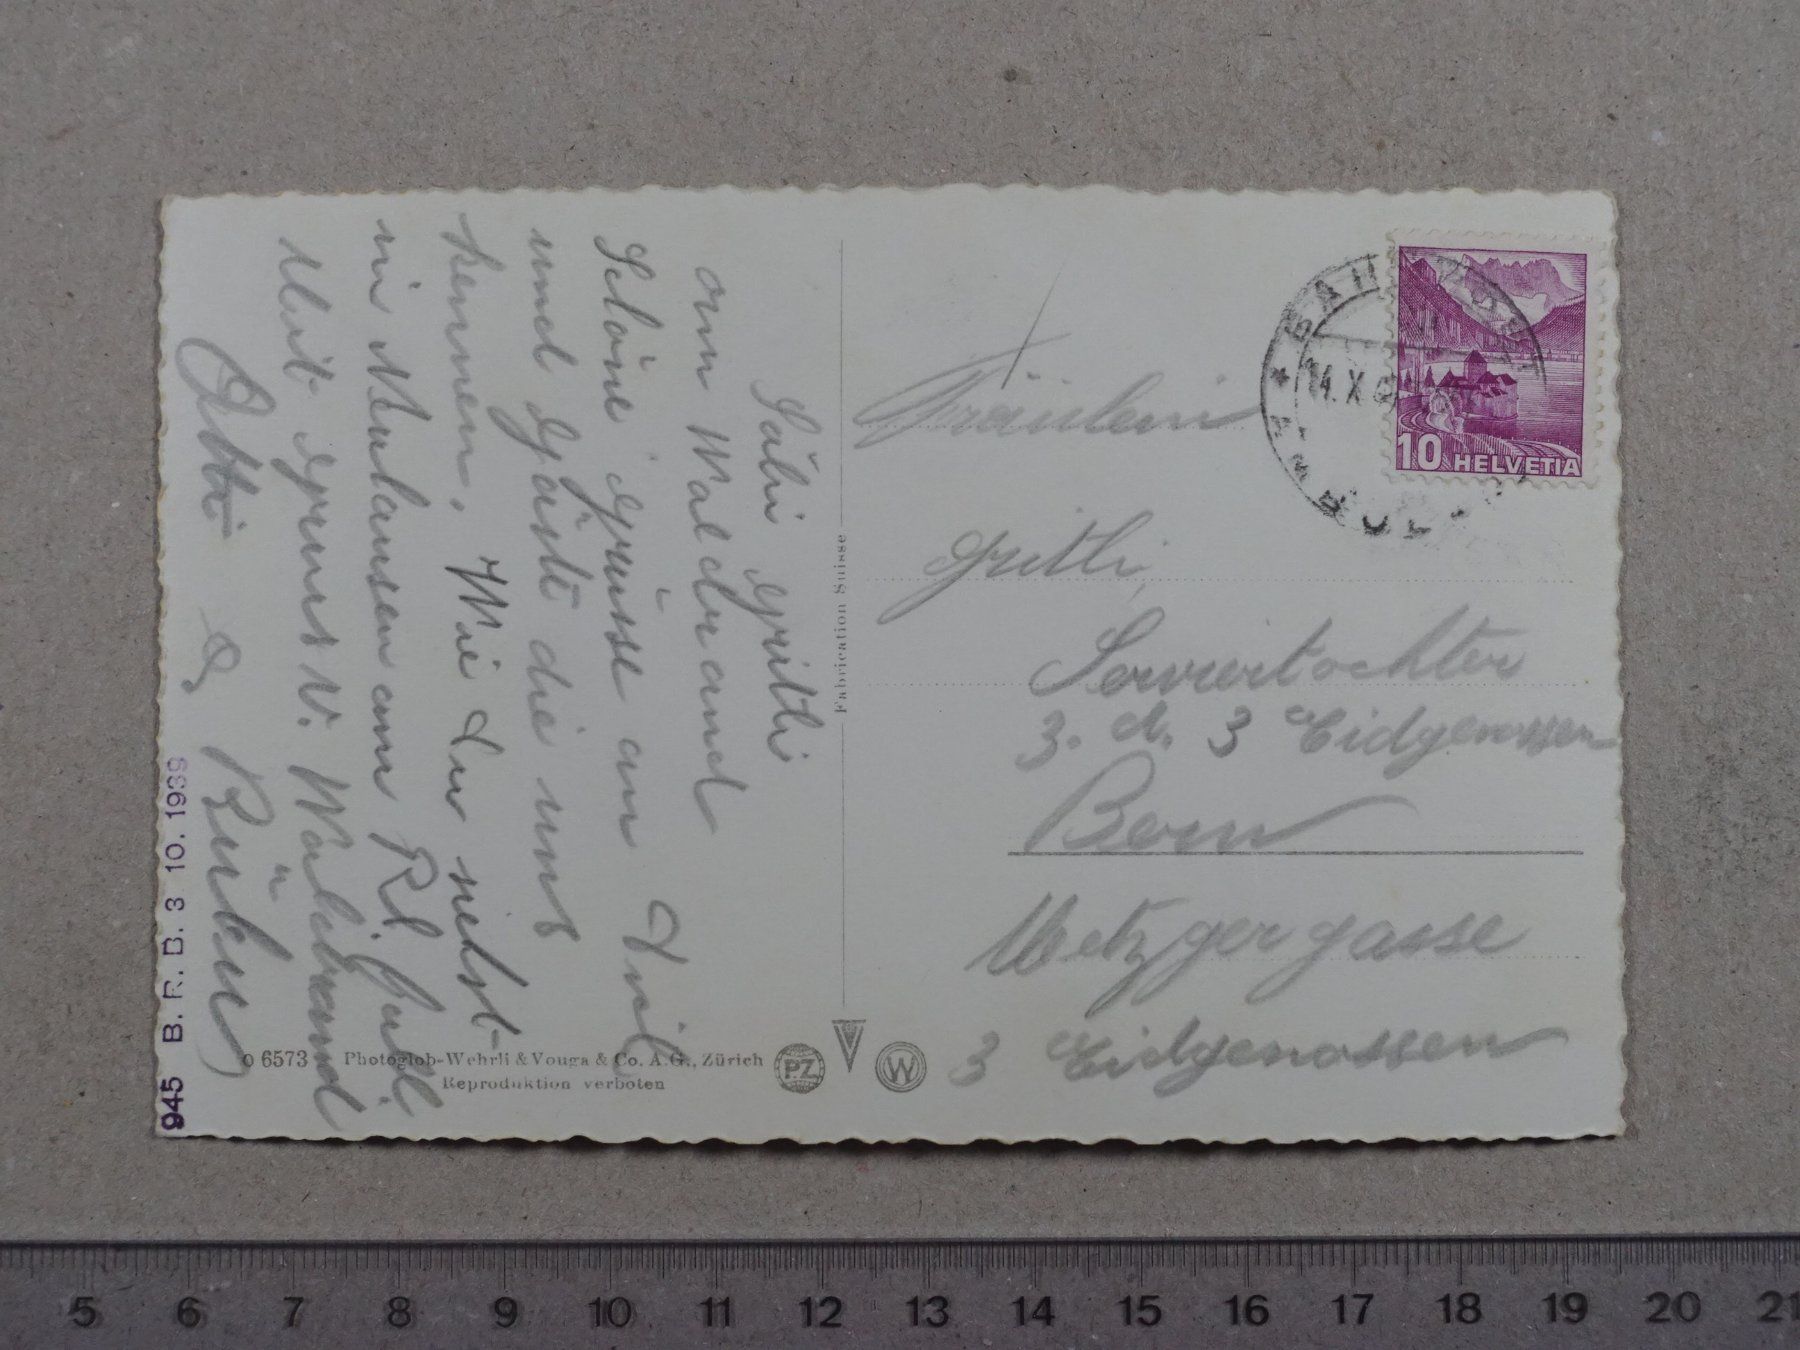 Sälü Gritli
am Waldrand
Schöne Grüsse an
und Gäste die uns
kennen. Wie Du siehst
am Rt. Ball
Mit Gruss W. Waldrand
Otti &
945 B. F. D. 3 10. 1939
O 6573 Photoglob-Wehrli & Vouga & Co. A.G., Zürich
Reproduktion verboten
PZ
W
Fabrication Suisse
Fräulein
Gritli
Serviertochter
z. d. 3 Eidgenossen
Bern
Metzgergasse
3 Eidgenossen
14. X
10 HELVETIA
5 6 7 8 9 10 11 12 13 14 15 16 17 18 19 20 21